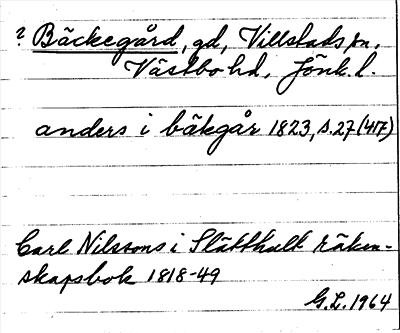 ? Bäckegård, gd, Villstads sn,
Västbo hd, Jönk. l.
anders i bäkgår 1823, s. 27 (417)
Carl Nilssons i Slätthult räken-
skapsbok 1818-49
G.L. 1964